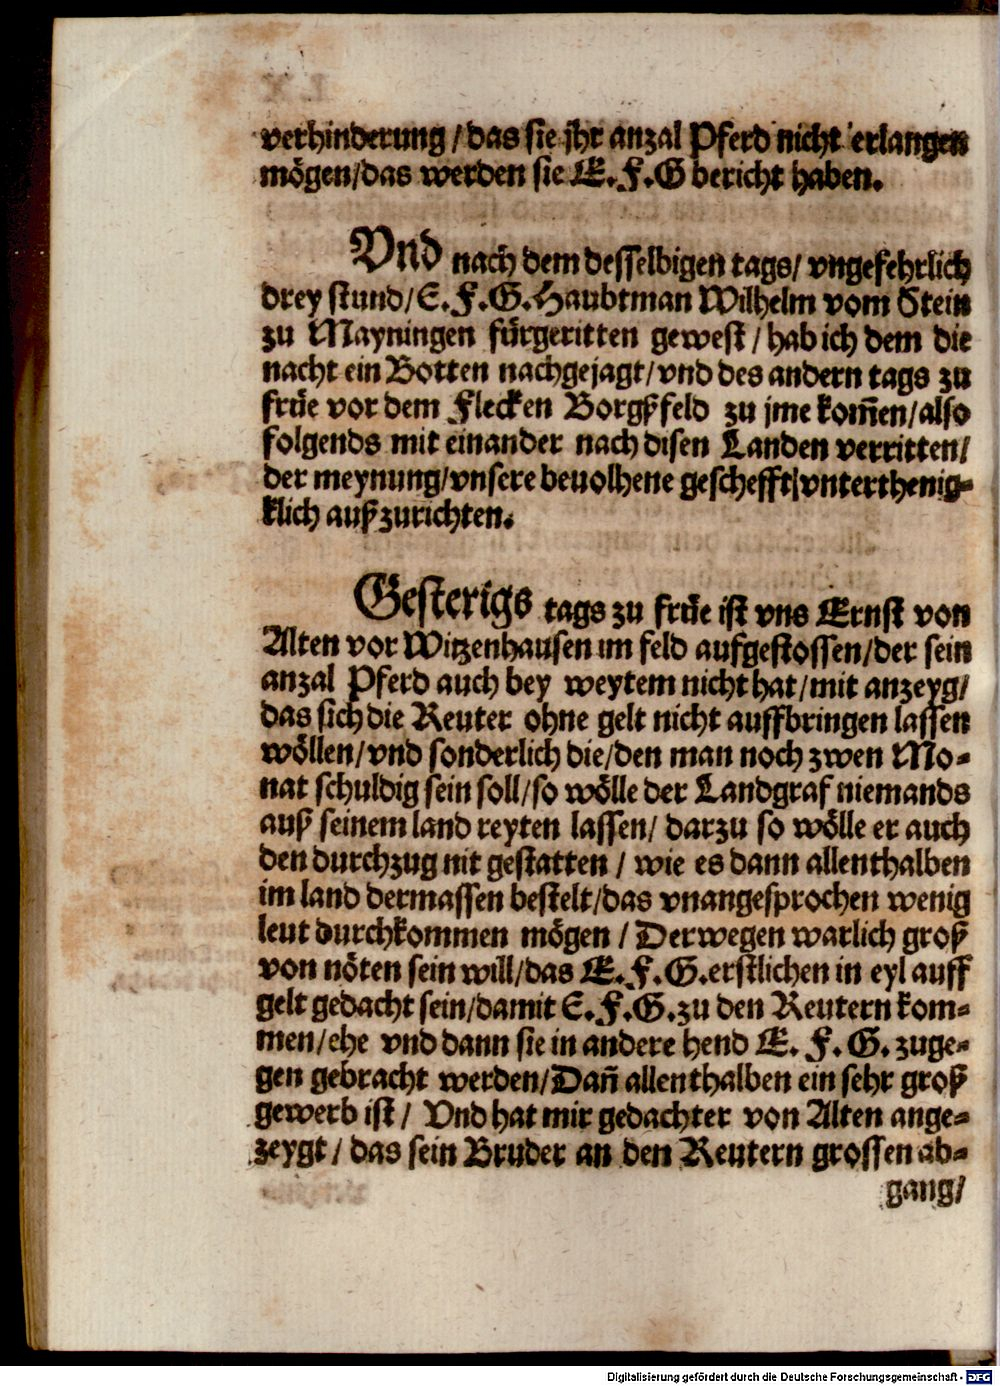 verhinderung / das sie jhr anzal Pferd nicht erlangen
mögen/das werden sie E.F.G bericht haben.
Vnd nach dem desselbigen tags/ vngefehrlich
drey stund/E.F.G.Haubtman Wilhelm vom Stein
zu Mayningen fürgeritten gewest / hab ich dem die
nacht ein Botten nachgejagt/vnd des andern tags zu
früe vor dem Flecken Borgßfeld zu jme kom̃en/also
folgends mit einander nach disen Landen verritten/
der meynung/vnsere beuolhene geschefft/vnterthenig=
klich außzurichten.
Gesterigs tags zu früe ist vns Ernst von
Alten vor Witzenhausen im feld aufgestossen/der sein
anzal Pferd auch bey weytem nicht hat/mit anzeyg/
das sich die Reuter ohne gelt nicht auffbringen lassen
wöllen/vnd sonderlich die/den man noch zwen Mo=
nat schuldig sein soll/so wölle der Landgraf niemands
auß seinem land reyten lassen/ darzu so wölle er auch
den durchzug nit gestatten / wie es dann allenthalben
im land dermassen bestelt/das vnangesprochen wenig
leut durchkommen mögen / Derwegen warlich groß
von nöten sein will/das E.F.G.erstlichen in eyl auff
gelt gedacht sein/damit E.F.G.zu den Reutern kom=
men/ehe vnd dann sie in andere hend E. F. G. zuge=
gen gebracht werden/Dañ allenthalben ein sehr groß
gewerb ist / Vnd hat mir gedachter von Alten ange=
zeygt / das sein Bruder an den Reutern grossen ab=
gang/
Digitalisierung gefördert durch die Deutsche Forschungsgemeinschaft - DFG